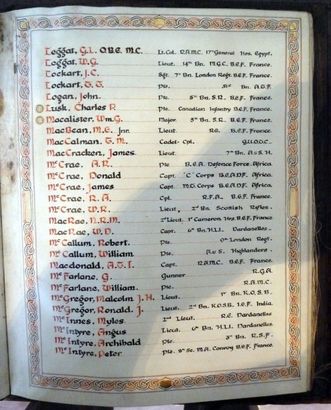 Loggat, G.L. O.B.E. M.C. Lt. Col. R.A.M.C. 17th General Hos. Egypt.
Loggat, W.G. Lieut. 14th Bn. M.G.C. B.E.F. France.
Lockart, J.C. Sgt. 7th Bn. London Regt. B.E.F. France.
Lockart, Pte. Bn. A.O.F.
Logan, John. Pte. 5th Bn. S.R. B.E.F. France.
Lusk, Charles R. Pte. Canadian Infantry B.E.F. France.
Macalister, Wm. G. Major. 5th Bn. S.R. B.E.F. France.
MacBean, M.E. Jnr. Lieut. R.E. B.E.F. France.
MacCalman, Cadet-Cpl. G.U.O.T.C.
MacCracken, James Lieut. 7th Bn. A & S.H.
McCrae, A.R. Pte. B.E.A. Defence Force. Africa
McCrae, Donald Capt. 'C' Corps B.E.A.D.F. Africa.
McCrae, James Capt. M.C. Corps B.E.A.D.F. Africa.
McCrae, R.A. Cpl. R.F.A. B.E.F. France.
McCrae, W.R. Lieut. 2nd Bn. Scottish Rifles.
MacRae, N.R.M. 2nd Lieut. 1st Cameron Hrs. B.E.F. France.
MacRae, W.D. Capt. 6th Bn. H.L.I. Dardanelles.
McCallum, Robert. Pte. London Regt.
McCallum, William Pte. Highlanders.
Macdonald, Capt. R.A.M.C. B.E.F. France.
McFarlane, G. Gunner R.G.A.
McFarlane, William. Pte. R.A.M.C.
McGregor, Malcolm J.H. Lieut. 1st Bn. K.O.S.B.
McGregor, Ronald. J. Lieut. 2nd Bn. K.O.S.B. I.E.F. India.
McInnes, Myles 2nd Lieut. R.E. Dardanelles
McIntyre, Angus Lieut. 6th Bn. H.L.I. Dardanelles
McIntyre, Archibald Pte. 3rd Bn. R.S.F.
McIntyre, Peter Pte. M.A. Convoy B.E.F. France.